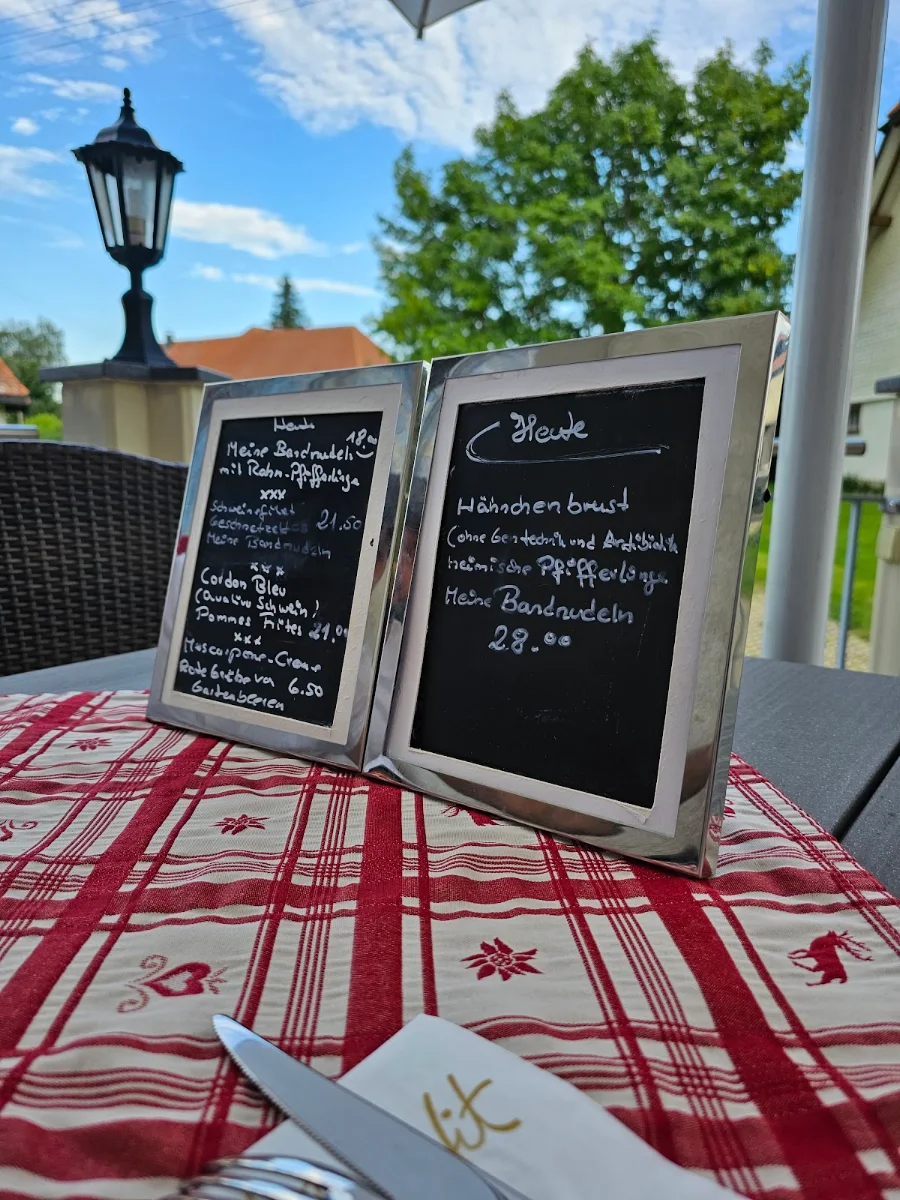 Heute
Meine Bandnudeln 18.00
mit Rahm-Pfifferlinge
xxx
Schweinefilet
Geschnetzeltes 21.50
Meine Bandnudeln
xxx
Cordon Bleu
Schwein)
Pommes Frites 21.00
xxx
Mascarpone-Creme
Rote Grütze va 6.50
Gartenbeeren
Heute
Hähnchenbrust
(ohne Gentechnik und Antibiotik
heimische Pfifferlinge
Meine Bandnudeln
28.00